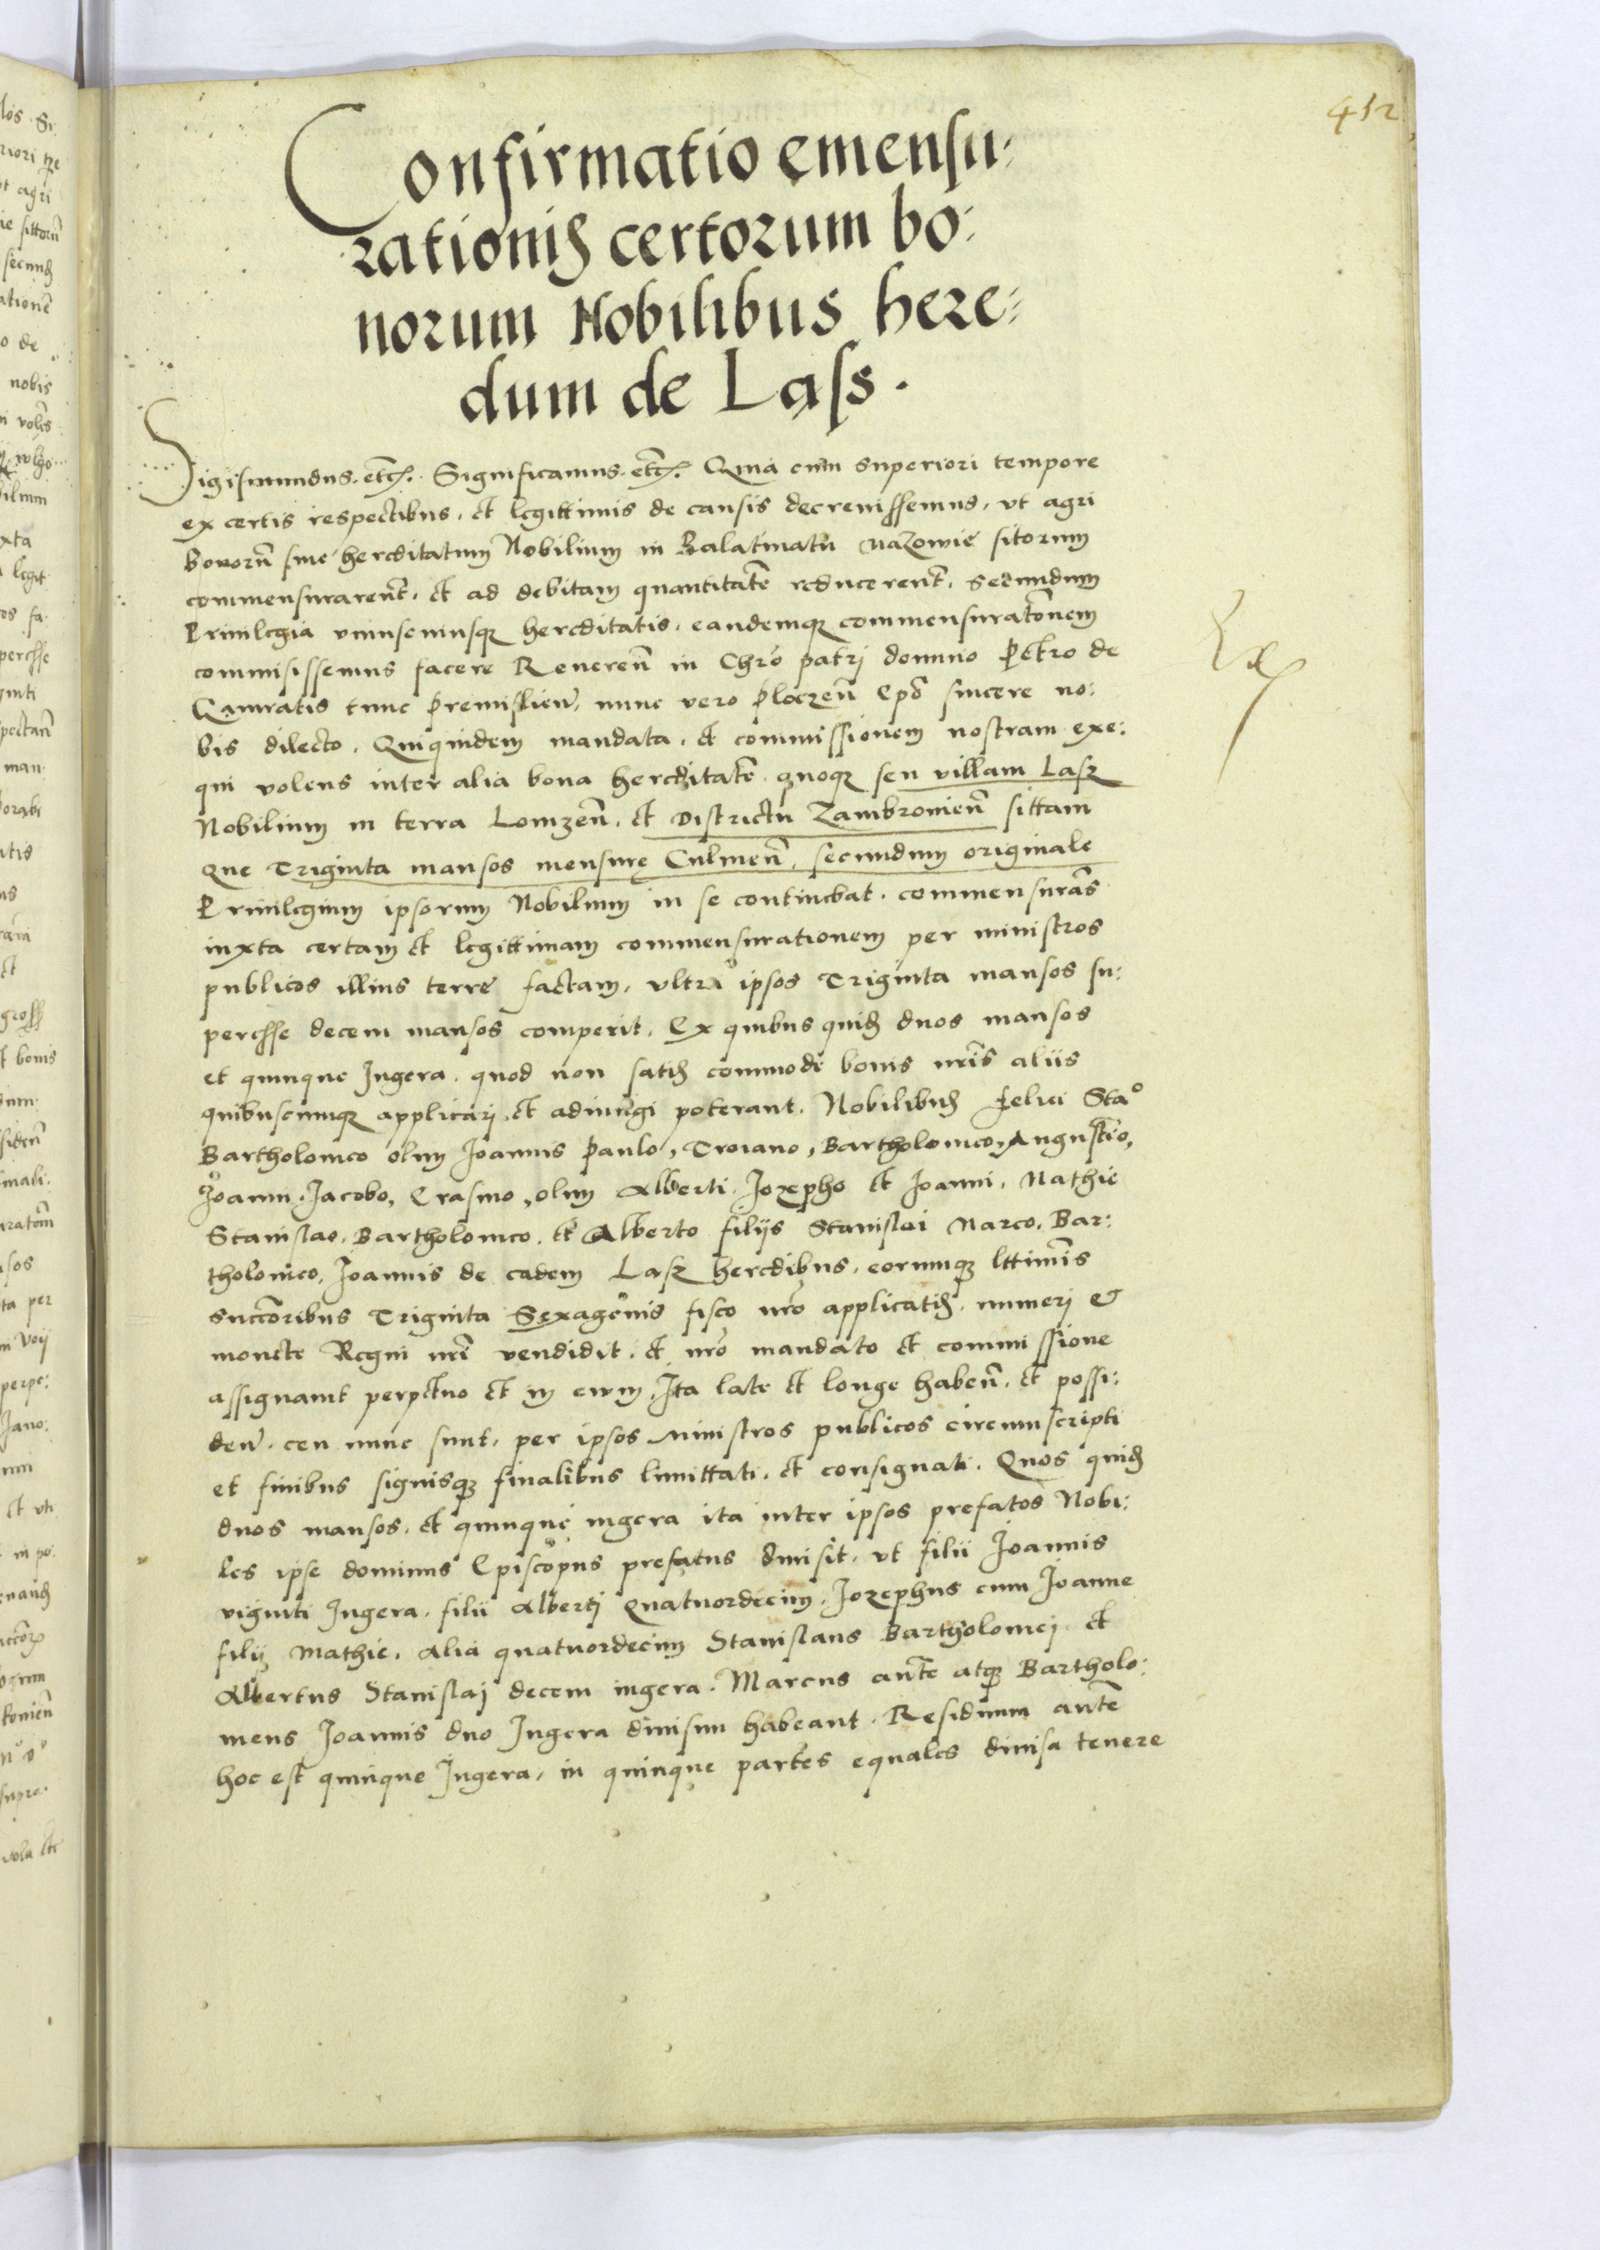 412
Confirmatio emensu:
rationis certorum bo:
norum Nobilibus here:
dum de Lass.
Sigismundus. etc. Significamus. etc. Quia cum superiori tempore
ex certis respectibus, et legittimis de causis decrevissemus, vt agri
bonorũ sive hereditatum Nobilium in Palatinatu Mazowie sitorum
commensurarent̃, et ad debitam quantitatẽ reducerent̃, secundum
Privilegia vniuscuiusq hereditatis, eandemq commensuratõnem
commisissemus facere Reveren̄ in Chro patrj domino Petro de
Gamratis tunc Premislien̄, nunc vero Plocẑen̄ Epõ sincere no:
bis dilecto. Quiquidem mandata, et commissionem nostram exe:
qui volens inter alia bona hereditatẽ quoq seu villam Lasz
Nobilium in terra Lomzen̄, et Districtu Zambrowien̄ sittam
que Triginta mansos mensurę Culmen̄, secundum originale
Privilegium ipsorum Nobilium in se continebat. commensurãs
iuxta certam et legittimam commensurationem per ministros
publicos illius terre factam, vltra ipsos Triginta mansos su:
peresse decem mansos comperit. Ex quibus quid duos mansos
et quinque Jugera, quod non satis commode bonis nr̃is aliis
quibuscumq applicarj et adiungi poterant, Nobilibus Felici Stao
Bartholomeo olim Joannis Paulo, Troiano, Bartholomeo, Augustino,
Joanni, Jacobo, Erasmo, olim Alberti, Jozepho et Joanni, Mathie
Stanislao, Bartholomeo, et Alberto filijs Stanislai Marco, Bar:
tholomeo, Joannis de eadem Lasz heredibus, eorumq lttimis
succõribus Triginta Sexagenis fisco nr̃o applicatis, numeri &
monete Regni nr̃i vendidit, et nr̃o mandato et commissione
assignavit perpetuo et in evm, Ita late et longe haben̄, et possi:
den̄, ceu nunc sunt, per ipsos Ministros publicos circumscripti
et finibus signisq finalibus limittati, et consignati. Quos quid
duos mansos, et quinque iugera ita inter ipsos prefatos Nobi:
les ipse dominus Episcopus prefatus divisit, vt filii Joannis
viginti Jugera, filii Albertj Quatuordecim, Jozephus cum Joanne
filij Mathie, alia quatuordecim Stanislaus Bartholomej et
Albertus Stanislaj decem iugera. Marcus aut̃e atq Bartholo:
meus Joannis duo Jugera divisim habeant. Residuum aut̃e
hoc est quinque Jugera, in quinque partes equales divisa tenere